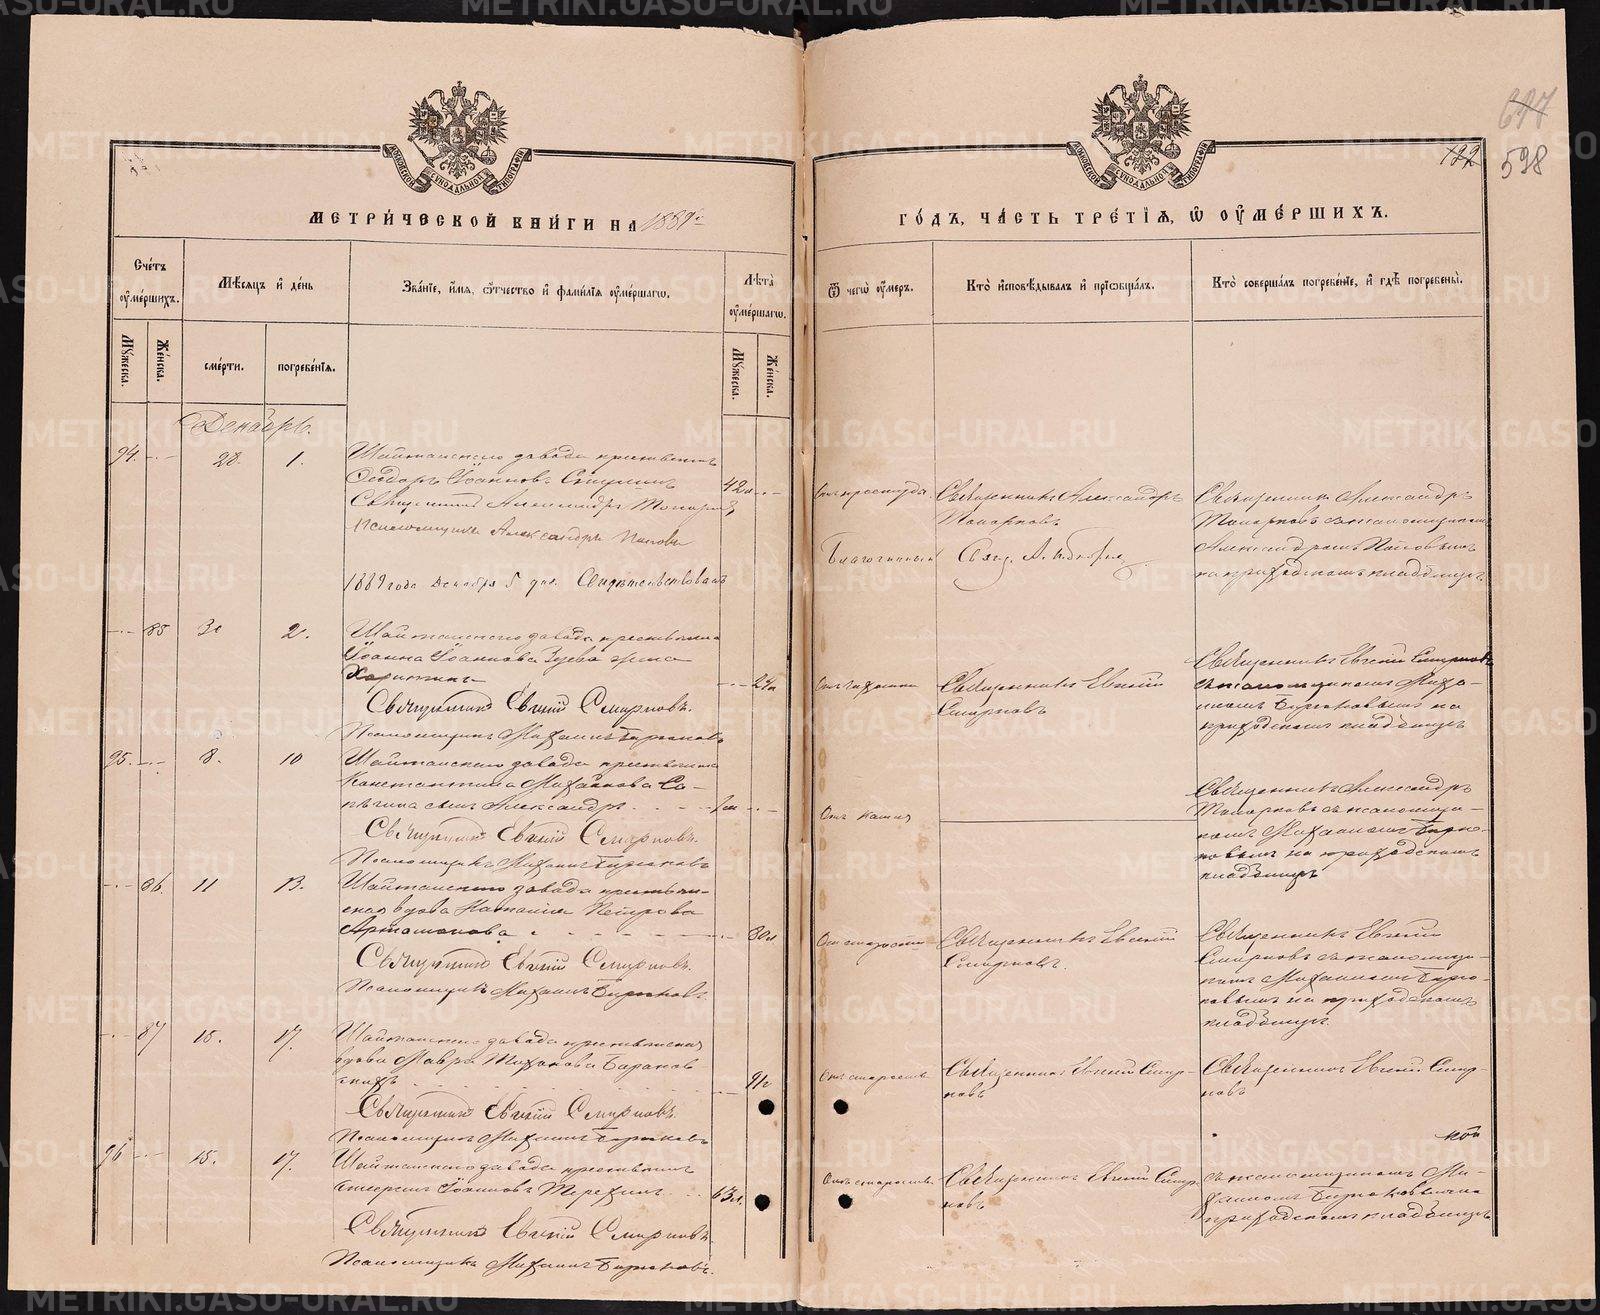 617
598
122
МОСКОВСКОЙ СѴНОДАЛЬНОЙ ТИПОГРАФІИ
МОСКОВСКОЙ СѴНОДАЛЬНОЙ ТИПОГРАФІИ
МЕТРИ́ЧЕСКОЙ КНИ́ГИ НА 1889
ГО́ДЪ, ЧА́СТЬ ТРЕ́ТІЯ, Ѡ ОУМЕ́РШИХЪ.
Сче́тъ оуме́ршихъ.
Мѣ́сяцъ и де́нь
Зва́ніе, и́мя, о́тчество и фами́лія оуме́ршагѡ.
Лѣ́та оуме́ршагѡ.
Ѿ чегѡ̀ оу́меръ.
Кто̀ исповѣ́дывалъ и пріѡбща́лъ.
Кто̀ соверша́лъ погребе́ніе, и гдѣ̀ погребены̀.
Му́жеска.
Же́нска.
сме́рти.
погребе́нія.
Му́жеска.
Же́нска.
Декабрь.
94.
28.
1.
Шайтанскаго завода крестьянинъ
Ѳеодоръ Іоанновъ
42
Священникъ Александръ Топорковъ
Псаломщикъ Александръ Поповъ
1889 года Декабря 5 дня. Свидѣтельствовалъ
Отъ простуды
Священникъ Александръ
Топорковъ
Священникъ Александръ
Топорковъ съ псаломщикомъ
Александромъ Поповымъ
на приходскомъ кладбищѣ
Благочинный Свящ. А.
85
30
2.
Шайтанскаго завода крестьянина
Іоанна Іоаннова Зуева жена
Харитина
Священникъ Евгеній Смирновъ.
Псаломщикъ Михаилъ Бирюковъ
Священникъ Евгеній
Смирновъ
Священникъ Евгеній Смирновъ
съ псаломщикомъ Миха-
иломъ Бирюковымъ на
приходскомъ кладбищѣ
95.
8.
10
Шайтанскаго завода крестьянина
Константина Михайлова Са-
пѣгина сынъ Александръ
Священникъ Евгеній Смирновъ.
Псаломщикъ Михаилъ Бирюковъ
Отъ кашля
Священникъ Александръ
Топорковъ съ псаломщи-
комъ Михаиломъ Бирю-
ковымъ на приходскомъ
кладбищѣ
86.
11
13.
Шайтанскаго завода крестьян-
ская вдова Наталія Петрова
Артамонова
80л
Священникъ Евгеній Смирновъ.
Псаломщикъ Михаилъ Бирюковъ.
Отъ старости
Священникъ Евгеній
Смирновъ.
Священникъ Евгеній
Смирновъ съ псаломщи-
комъ Михаиломъ Бирю-
ковымъ на приходскомъ
кладбищѣ.
87
15.
17.
Шайтанскаго завода крестьянская
вдова Мавра Тихонова Баранов-
скихъ
91
Священникъ Евгеній Смирновъ.
Псаломщикъ Михаилъ Бирюковъ
Отъ старости
Священникъ Евгеній Смир-
новъ
Священникъ Евгеній Смир-
новъ
96
15.
17.
Шайтанскаго завода крестьянинъ
Іоанновъ Терехинъ
63л.
Священникъ Евгеній Смирновъ.
Псаломщикъ Михаилъ Бирюковъ.
Отъ старости
Священникъ Евгеній Смир-
новъ
съ псаломщикомъ Ми-
хаиломъ Бирюковымъ на
приходскомъ кладбищѣ
METRIKI.GASO-URAL.RU